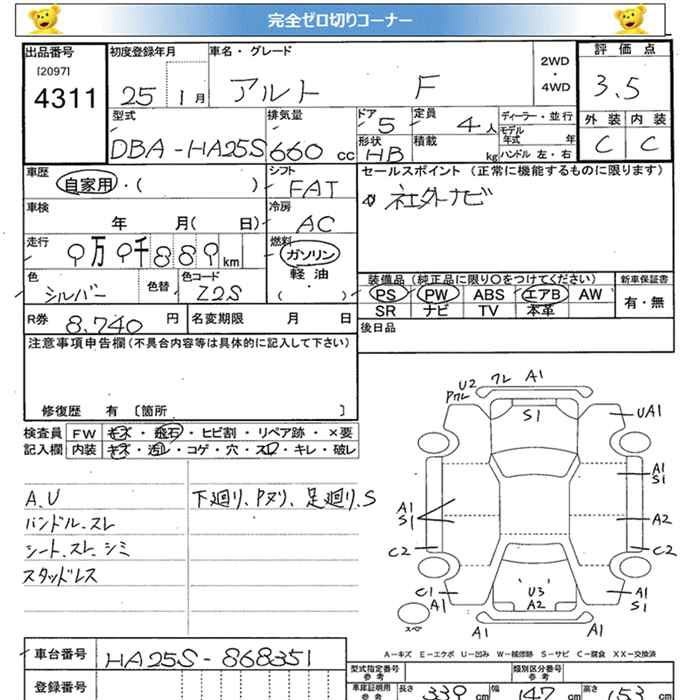 完全ゼロ切りコーナー
出品番号 初度登録年月 車名・グレード 評価点
[2097]
4311 25 1月 アルト F 2WD 4WD 3.5
型式 排気量 ドア 定員 ディーラー・並行 外装 内装
DBA-HA25S 660 cc 5 4人 モデル年式 年 C C
形状 積載
HB kg ハンドル 左・右
車歴 シフト セールスポイント (正常に機能するものに限ります)
自家用・( ) FAT 社外ナビ
車検 冷房
年 月( 日) AC
走行 燃料
9万9千889km ガソリン
軽油
( ・ )
色 色替 色コード
シルバー Z2S
装備品(純正品に限り〇をつけてください) 新車保証書
PS PW ABS エアB AW 有・無
SR ナビ TV 本革
R券 8,740 円 名変期限 月 日 後日品
注意事項申告欄(不具合内容等は具体的に記入して下さい)
修復歴 有 [箇所 ]
検査員 FW キズ・飛石・ヒビ割・リペア跡・×要
記入欄 内装 キズ・汚レ・コゲ・穴・スレ・キレ・破レ
A,U 下廻り、Pヌリ、足廻り、S
ハンドル.スレ
シート.スレ.シミ
スタッドレス
U2 クレ A1
Pクレ
S1 UA1
A1
S1
A1
S1
A2
C2 C2
U3
A2
C1
A1
A1
S1
スペア
A1 A1
A－キズ E－エクボ U－凹み W－補修跡 S－サビ C－腐食 XX－交換済
車台番号 HA25S-868351
登録番号
型式指定番号 参考 類別区分番号 参考
車庫証明用 参考 長さ 339 cm 幅 147 cm 高さ 153 cm